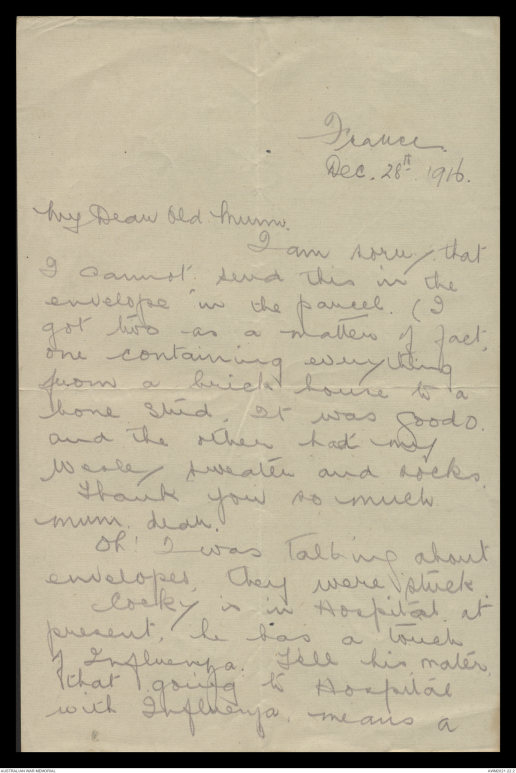 France.
Dec. 28th 1916.
My Dear Old Mum.
I am sorry that
I cannot send this in the
envelope in the parcel. (I
got two as a matter of fact,
one containing everything
from a brick house to a
bone stud. It was goodo.
and the other had my
Wooley sweater and socks.
Thank you so much
mum dear.
Oh! I was talking about
envelopes, they were stuck
Cocky is in Hospital at
present, he has a touch
of Influenza. Tell his mater
that going to Hospital
with Influenza means a
AUSTRALIAN WAR MEMORIAL
AWM2021.22.2